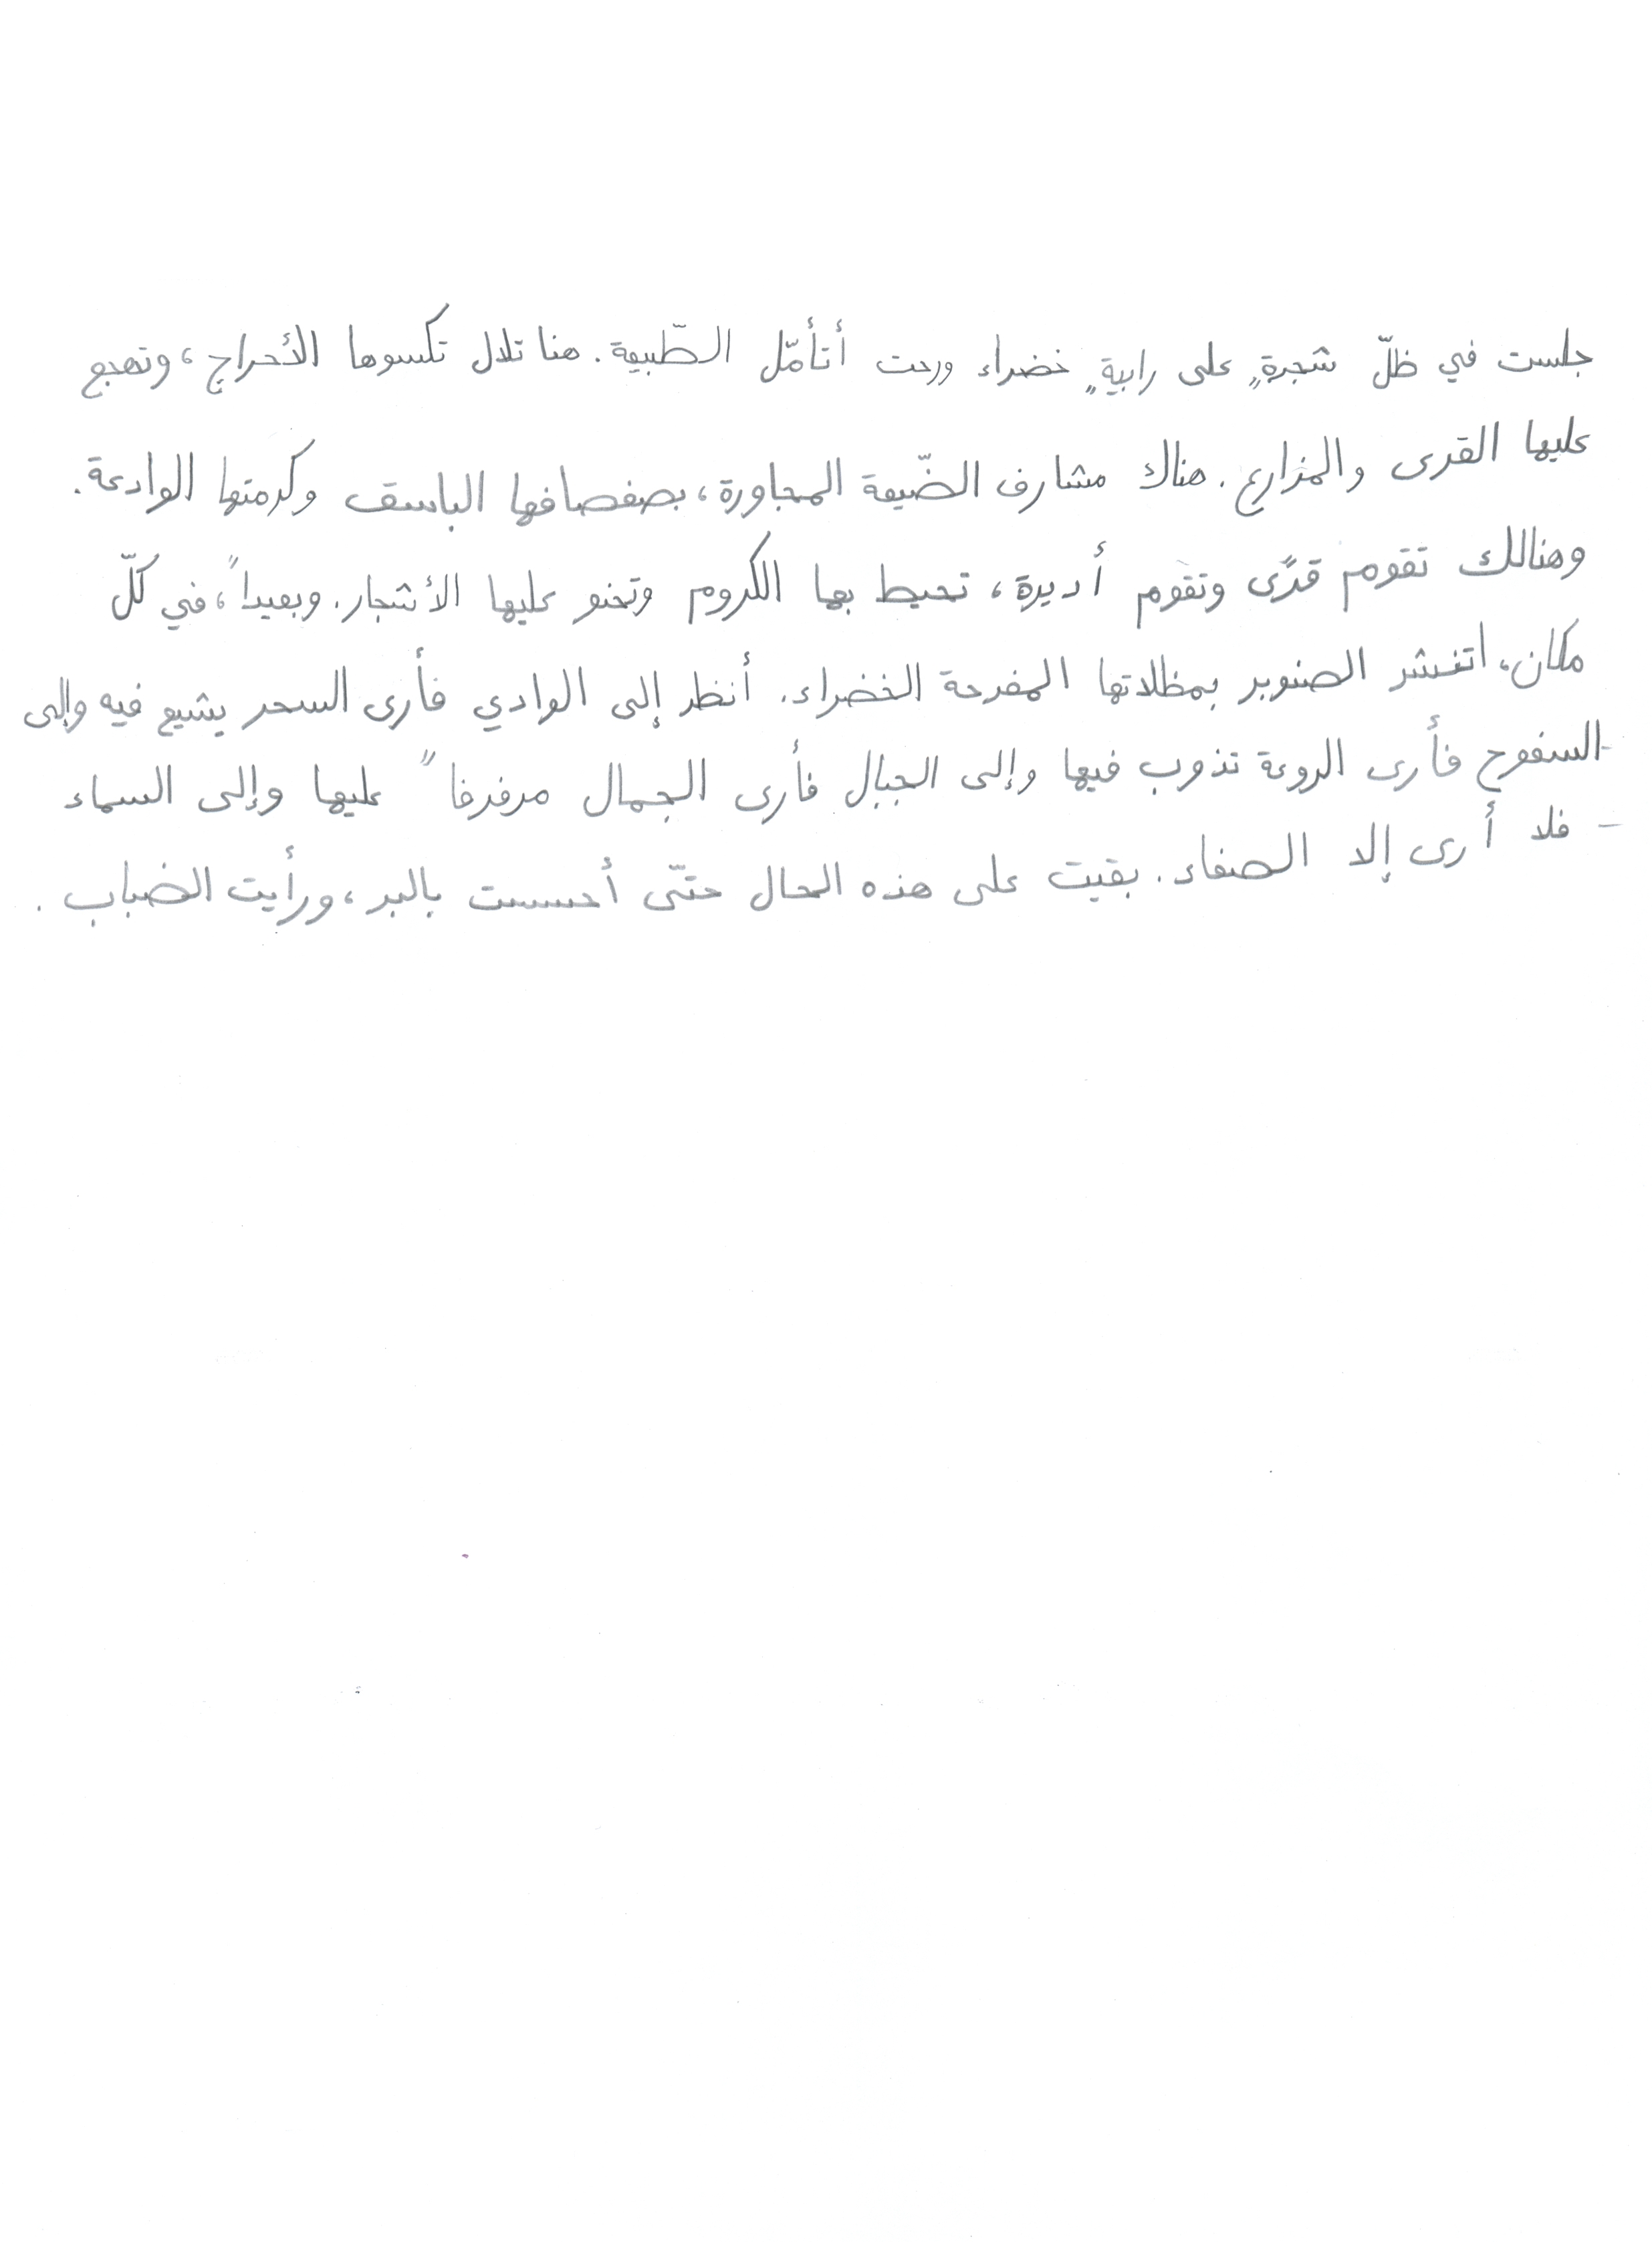 جلست في ظلّ شجرةٍ على رابيةٍ خضراء ورحت أتأمّل الطّبيعة. هنا تلال تكسوها الأحراج، وتهجع
عليها القرى والمزارع. هناك مشارف الضّيعة المجاورة، بصفصافها الباسق وكرمتها الوادعة.
وهنالك تقوم قرًى وتقوم أديرة، تحيط بها الكروم وتحنو عليها الأشجار. وبعيداً، في كلّ
مكان، انتشر الصنوبر بمظلاتها المفرحة الخضراء. أنظر إلى الوادي فأرى السحر يشيع فيه وإلى
السفوح فأرى الروعة تذوب فيها وإلى الجبال فأرى الجمال مرفرفاً عليها وإلى السماء
- فلا أرى إلا الصفاء. بقيت على هذه الحال حتّى أحسست بالبر، ورأيت الضباب.